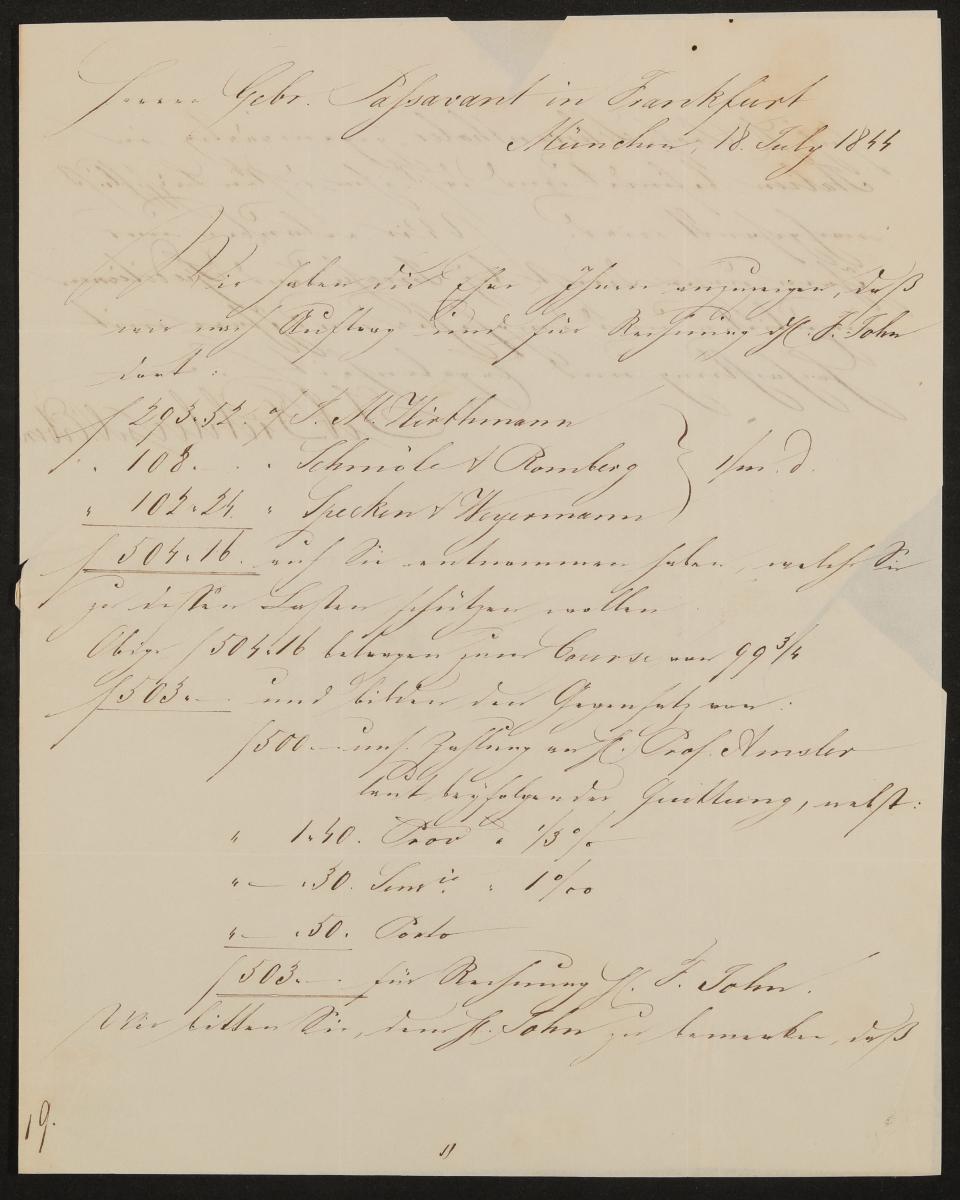 Herren Gebr. Passavant in Frankfurt
München, 18. July 1844
Wir haben die Ehre Ihnen anzuzeigen, daß
wir nach Auftrag und für Rechnung d H. F. John
dort:
f 293.52. o/ S. M. Wirthmann
" 108.–. " Schmöle & Romberg } 1/m. d.
" 102.24. " Specken & Weyermann
f 504.16. auf Sie entnommen haben, welche Sie
zu dessen Lasten schützen wollen.
Obige f 504.16 betragen zum Course von 99 3/4
f 503.–. und bilden den Gegensatz von:
f 500.– uns. Zahlung an H. Prof. Amsler
laut beyfolgender Quittung, nebst:
" 1.40. Prov. a 1/3 %
" – .30. Sensie. " 1 %00
" – .50. Porto
f 503.–. für Rechnung H. F. John.
Wir bitten Sie, dem H. John zu bemerken, daß
19.